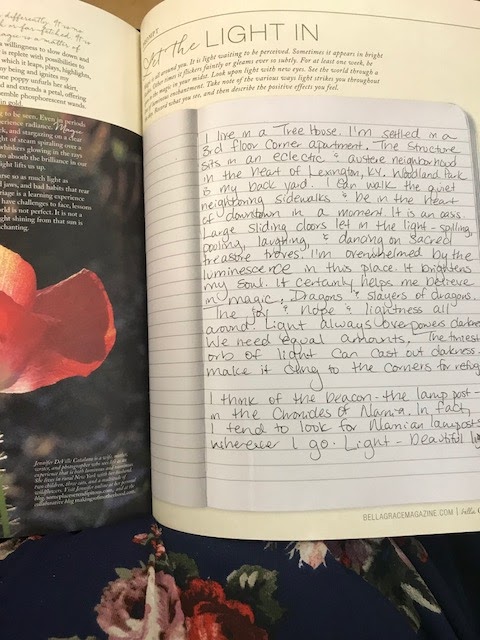 differently. It is no
so far-fetched. It is
magic is a matter of
willingness to slow down and
is replete with possibilities to
which it leaps, plays, highlights,
my being and ignites my
poppy unfurls her skirt,
and extends a petal, offering
semble phosphorescent wands.
in gold.
to be seen. Even in periods
experience radiance. Magic
k, and stargazing on a clear
of steam spiraling over a
whiskers glowing in the rays
to absorb the brilliance in our
light lifts us up.
urse so as much light as
d jaws, and had habits that rear
riage is a learning experience
have challenges to face, lessons
rld is not perfect. It is not a
ght shining from that sun is
chanting.
Jennifer DeVille Catalano is a wife, mother,
writer, and photographer who
experience that is both luminous and numinous.
She lives in rural New York with her husband,
two children, three cats, and a multitude of
wildflowers. Visit Jennifer online at her personal
blog,
collaborative blog
Let the LIGHT IN
all around you. It is light waiting to be perceived. Sometimes it appears in bright
times it flickers faintly or gleams ever so subtly. For at least one week, be
the magic in your midst. Look upon light with new eyes. See the world through a
luminous enchantment. Take note of the various ways light strikes you throughout
day. Record what you see, and then describe the positive effects you feel.
I live in a Tree House. I'm settled in a
3rd floor Corner apartment. The Structure
sits in an eclectic & austere neighborhood
in the heart of Lexington, KY. Woodland Park
is my back yard. I can walk the quiet
neighboring sidewalks & be in the heart
of downtown in a moment. It is an oasis.
Large sliding doors let in the light - spilling,
pooling, laughing, & dancing on sacred
treasure troves. I'm overwhelmed by the
luminescence in this place. It brightens
my soul. It certainly helps me believe
in magic, Dragons & slayers of dragons.
The joy & hope & lightness all
around. Light always overpowers darkne
We need equal amounts. The tiniest
orb of light can cast out darkness.
make it cling to the corners for refug
I think of the beacon - the lamp post -
in the Chronicles of Narnia. In fact,
I tend to look for Narnian lamposts
wherever I go. Light - beautiful li
BELLAGRACEMAGAZINE.COM | bella